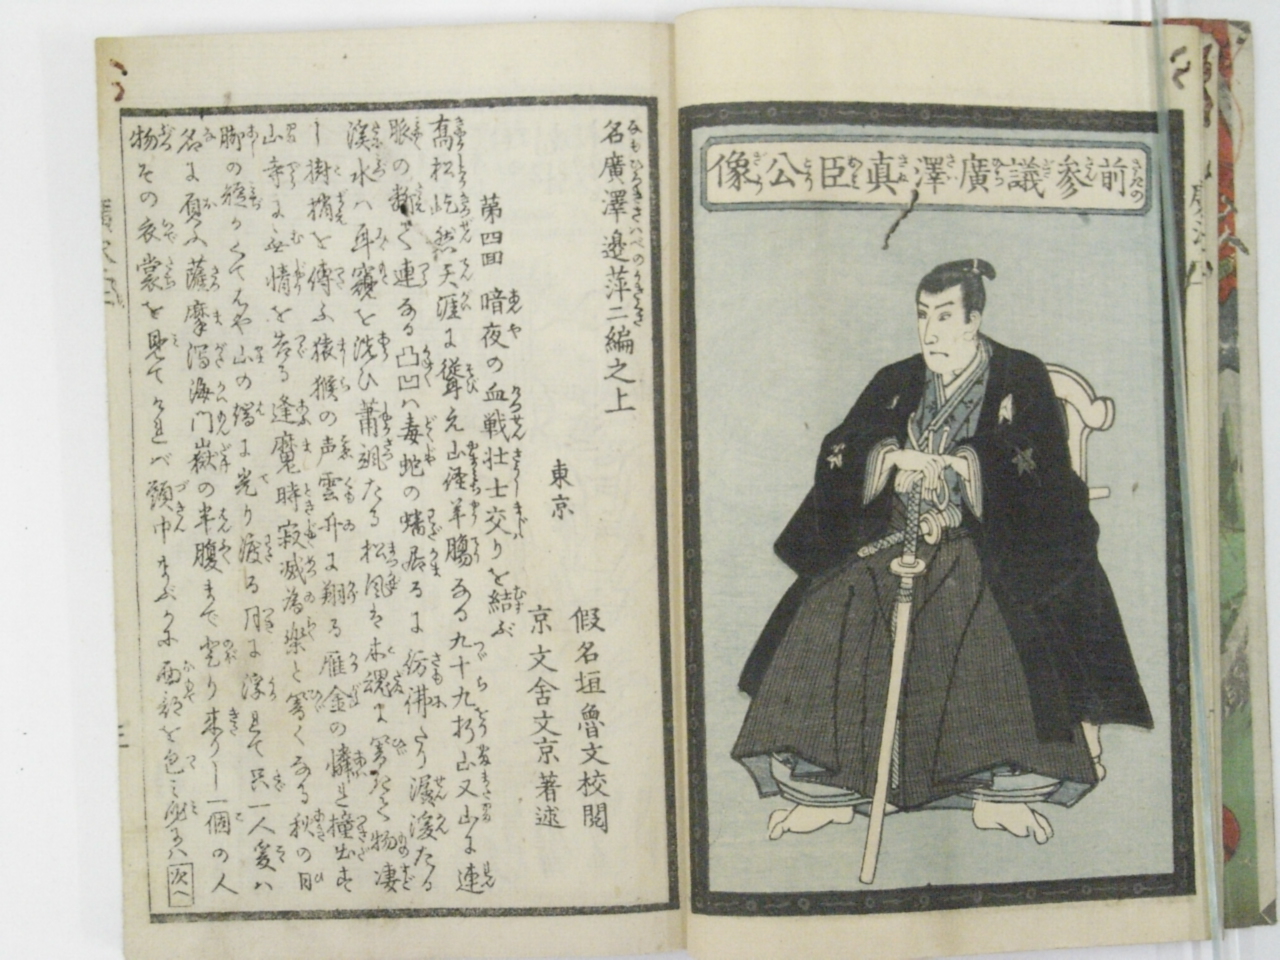 前参議廣澤真臣公像
名廣澤邉萍二編之上
東京
假名垣魯文校閲
京文舍文京著述
第四回 暗夜の血戦壮士交りを結ぶ
髙松屹然天涯に聳え山徑羊膓たる九十九折山又山に連
脈の数く連なる凸凹ハ毒蛇の蟠居るに彷彿たり潺湲たる
渓水ハ耳竅を洗ひ蕭颯たる松風は木魂に響きて物凄
し樹梢を傳ふ猿猴の声雲井に翔る雁金の
山寺に無情を告る逢魔時寂滅為楽と響くなる秋の日
脚の短かくてはや山の端に光り渡る月に浮れて只一人爰ハ
名に負ふ薩摩潟海門嶽の半腹まで登り来りし一個の人
物その衣裳を見てあれバ頭巾まぶかに面部を包み
次へ